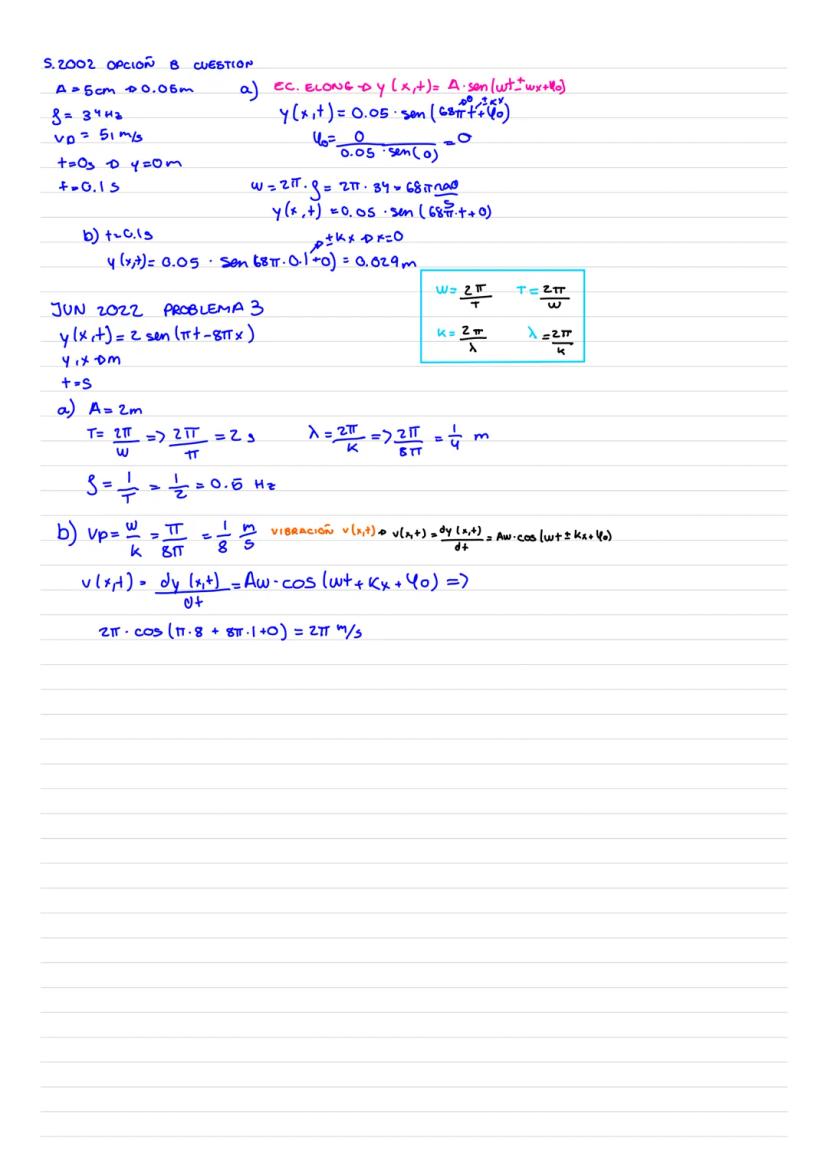 S.2002 OPCIOÑ B CUESTION
A = 5cm → 0.05m a) EC. ELONG → y(x,t) = A·sen(wt ± wx + φ₀)
f = 34 Hz y(x,t) = 0.05 · sen(68πt + φ₀) →0 ±kx
vp = 51 m/s φ₀ = 0/(0.05 · sen(0)) = 0
t=0s → y=0m
t=0.1s w = 2π·f = 2π·34 = 68π rad/s
y(x,t) = 0.05 · sen(68π·t + 0)
b) t=0.1s →±kx → x=0
y(x,t) = 0.05 · sen(68π·0.1+0) = 0.029m
w = 2π/T T = 2π/w
k = 2π/λ λ = 2π/k
JUN 2022 PROBLEMA 3
y(x,t) = 2 sen(πt - 8πx)
y,x → m
t = s
a) A = 2m
T = 2π/w => 2π/π = 2 s λ = 2π/k => 2π/8π = 1/4 m
f = 1/T = 1/2 = 0.5 Hz
b) vp = w/k = π/8π = 1/8 m/s VIBRACIÓN v(x,t) → v(x,t) = dy(x,t)/dt = Aw·cos(wt ± kx + φ₀)
v(x,t) = dy(x,t)/dt = Aw·cos(wt + kx + φ₀) =>
2π · cos(π·8 + 8π·1+0) = 2π m/s